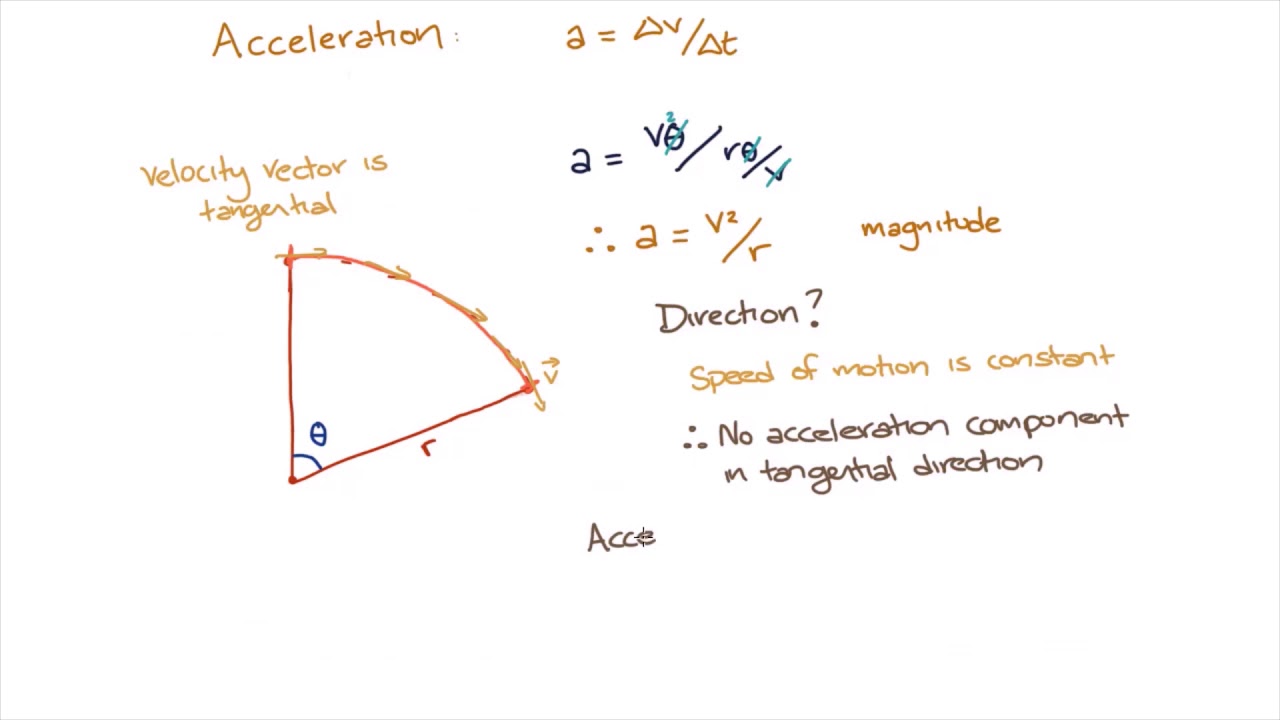 Acceleration: a = Δv/Δt
a = vθ²/rθ/v
velocity vector is
tangential
∴ a = v²/r magnitude
Direction?
Speed of motion is constant
v
∴ No acceleration component
θ
r
in tangential direction
Acce